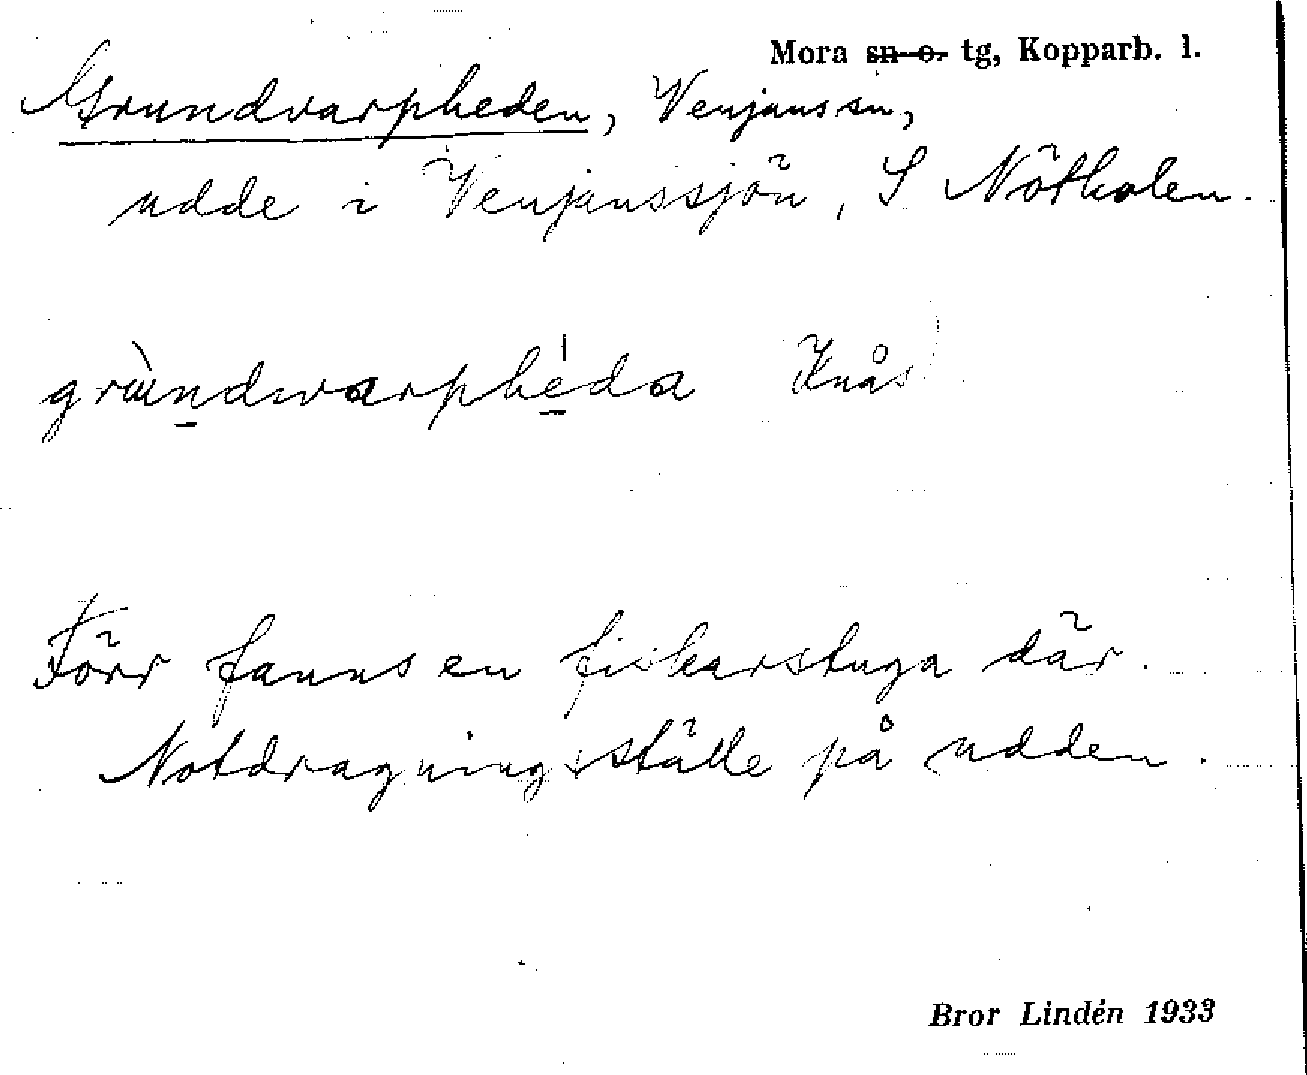 Mora sn o. tg, Kopparb. l.
Grundvarpheden, Venjans sn,
udde i Venjanssjön, S Nötholen.
grùndwarphéda Knås
Förr fanns en fiskarstuga där.
Notdragningsställe på udden.
Bror Lindén 1933